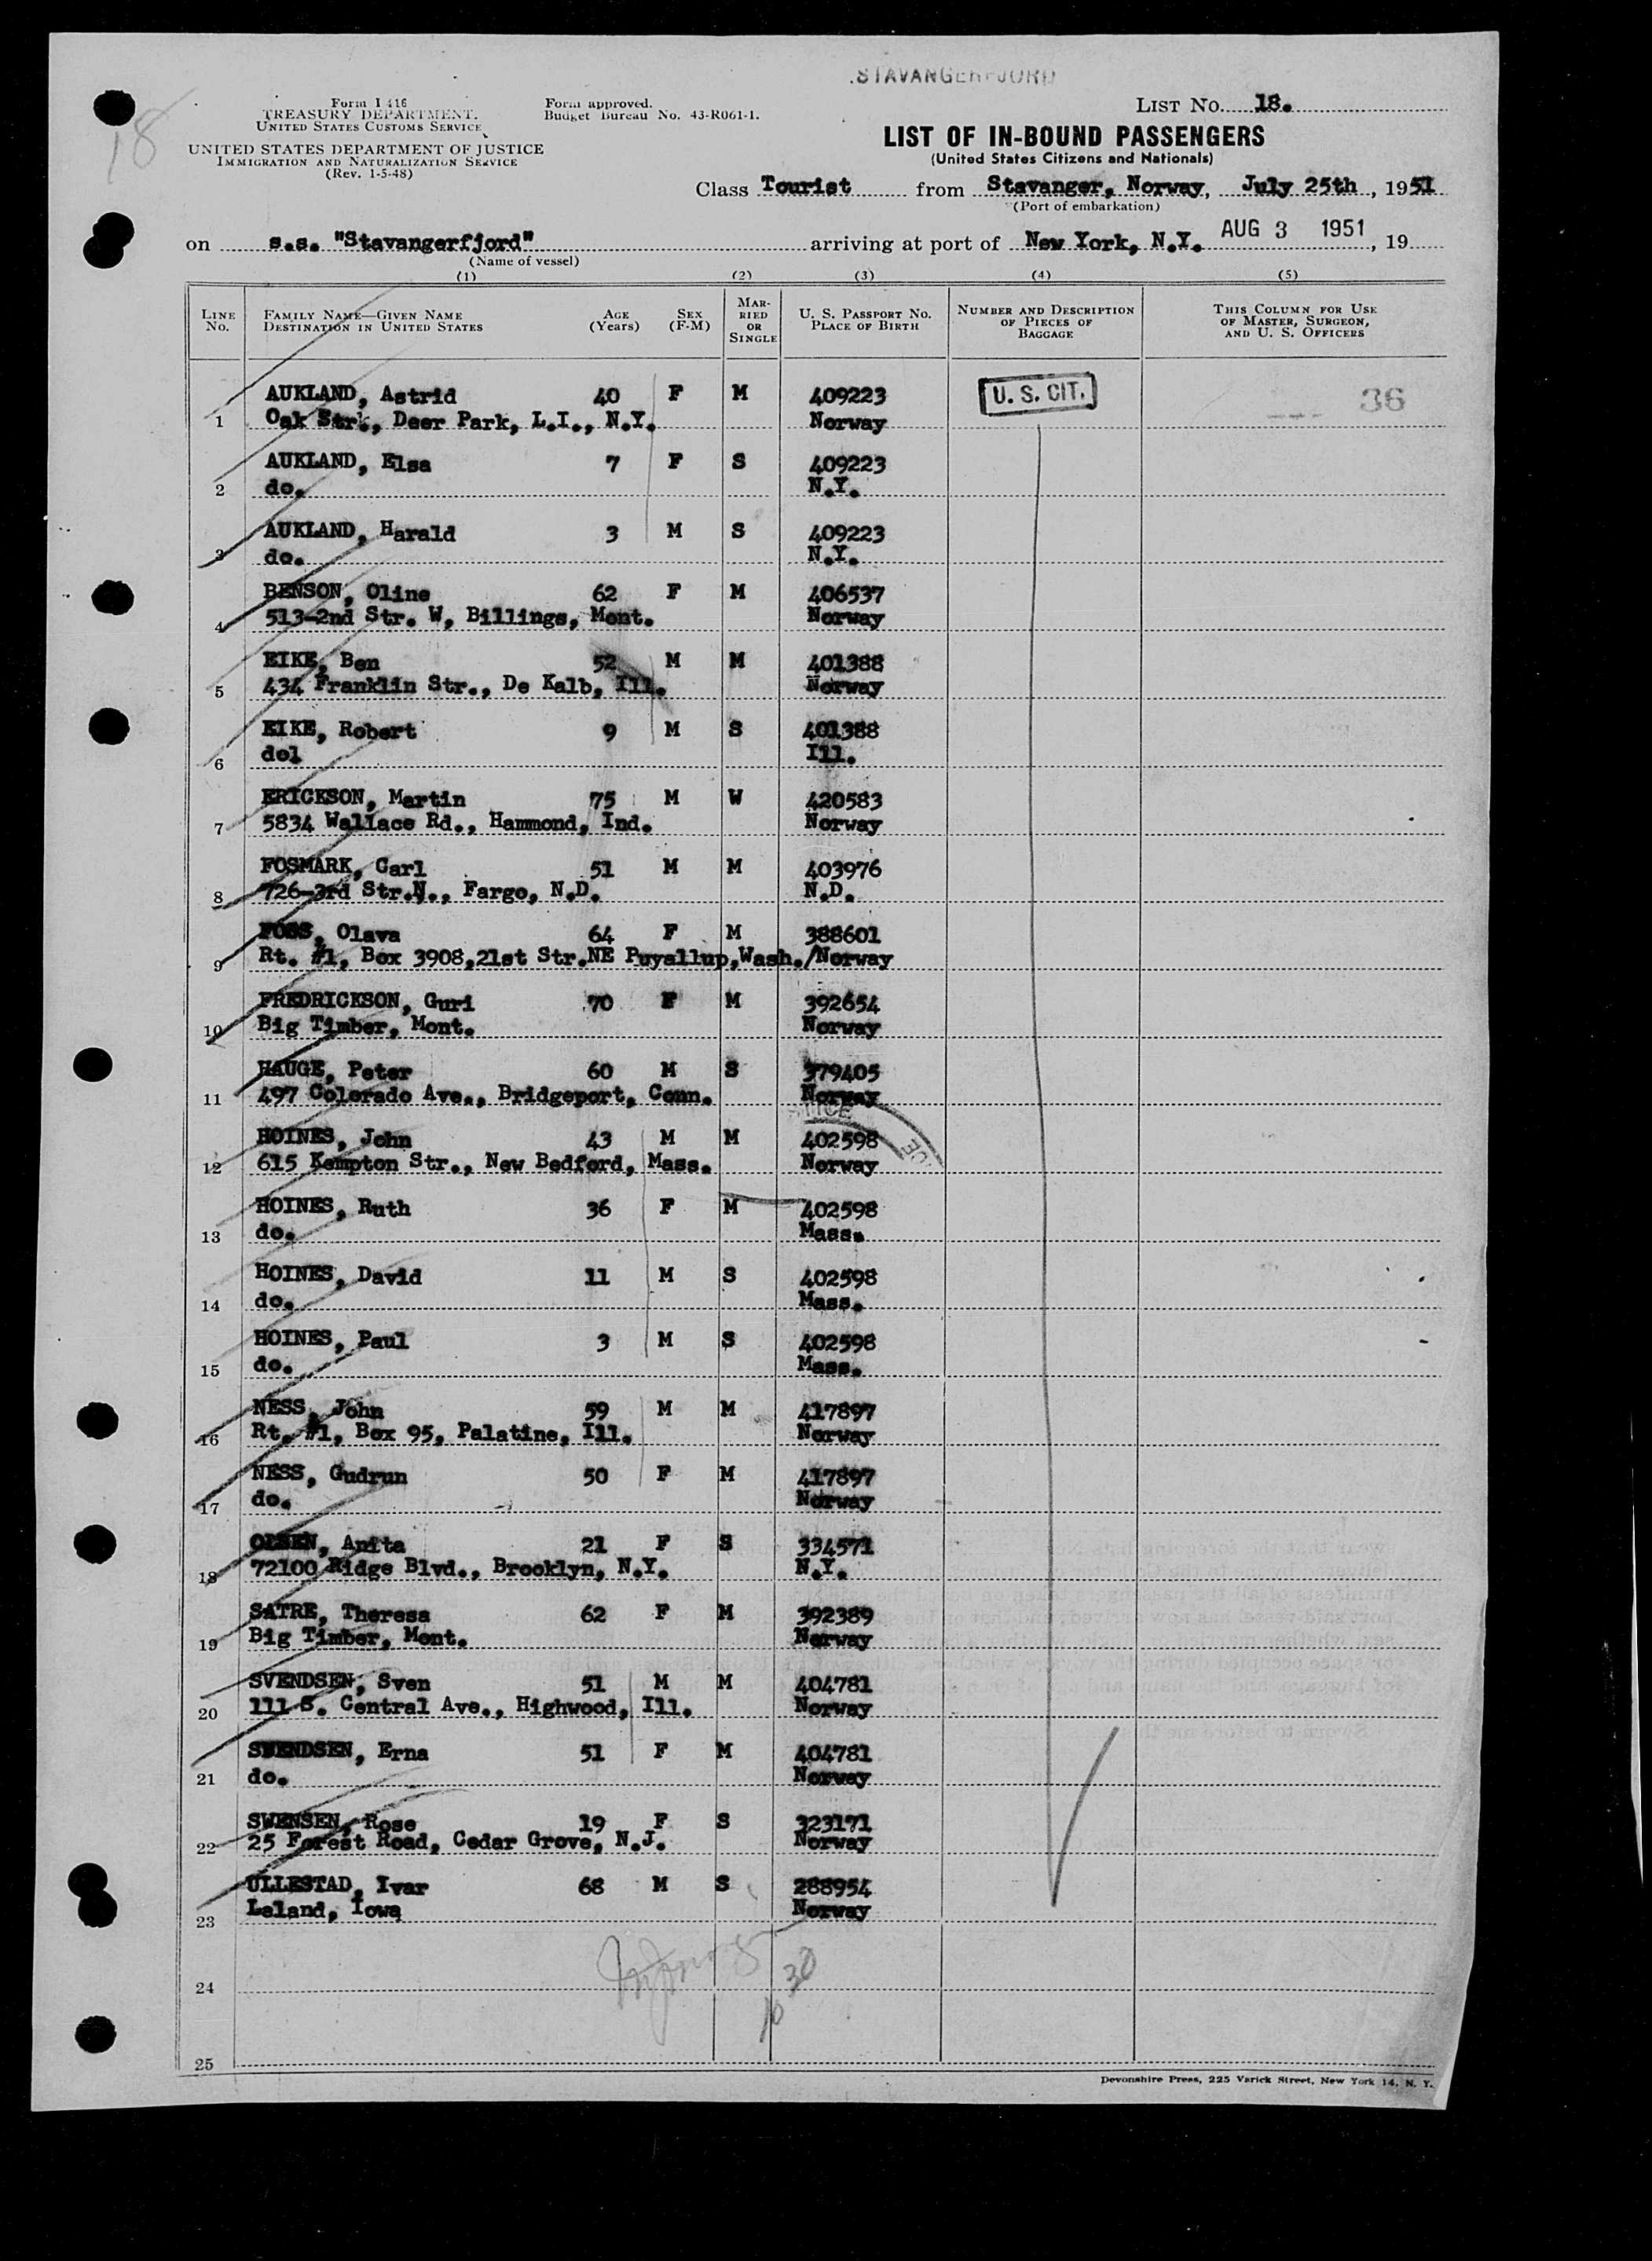 STAVANGERFJORD
18
Form I 416
TREASURY DEPARTMENT.
UNITED STATES CUSTOMS SERVICE
UNITED STATES DEPARTMENT OF JUSTICE
IMMIGRATION AND NATURALIZATION SERVICE
(Rev. 1-5-48)
Form approved.
Budget Bureau No. 43-R061-1.
LIST NO. 18.
LIST OF IN-BOUND PASSENGERS
(United States Citizens and Nationals)
Class Tourist from Stavanger, Norway, July 25th, 1951
(Port of embarkation)
on s.s. "Stavangerfjord" arriving at port of New York, N.Y. AUG 3 1951, 19
(Name of vessel)
(1) (2) (3) (4) (5)
LINE NO.
FAMILY NAME—GIVEN NAME
DESTINATION IN UNITED STATES
AGE
(Years)
SEX
(F-M)
MAR-
RIED
OR
SINGLE
U. S. PASSPORT NO.
PLACE OF BIRTH
NUMBER AND DESCRIPTION
OF PIECES OF
BAGGAGE
THIS COLUMN FOR USE
OF MASTER, SURGEON,
AND U. S. OFFICERS
AUKLAND, Astrid 40 F M 409223 U. S. CIT. 36
1 Oak Str., Deer Park, L.I., N.Y. Norway
AUKLAND, Elsa 7 F S 409223
2 do. N.Y.
AUKLAND, Harald 3 M S 409223
3 do. N.Y.
BENSON, Oline 62 F M 406537
4 513-2nd Str. W, Billings, Mont. Norway
EIKE, Ben 52 M M 401388
5 434 Franklin Str., De Kalb, Ill. Norway
EIKE, Robert 9 M S 401388
6 dol Ill.
ERICKSON, Martin 75 M W 420583
7 5834 Wallace Rd., Hammond, Ind. Norway
FOSMARK, Carl 51 M M 403976
8 726-3rd Str.N., Fargo, N.D. N.D.
FOSS, Olava 64 F M 388601
9 Rt. #1, Box 3908,21st Str.NE Puyallup,Wash./Norway
FREDRICKSON, Guri 70 F M 392654
10 Big Timber, Mont. Norway
HAUGE, Peter 60 M S 379405
11 497 Colorado Ave., Bridgeport, Conn. Norway
HOINES, John 43 M M 402598
12 615 Kempton Str., New Bedford, Mass. Norway
HOINES, Ruth 36 F M 402598
13 do. Mass.
HOINES, David 11 M S 402598
14 do. Mass.
HOINES, Paul 3 M S 402598
15 do. Mass.
NESS, John 59 M M 417897
16 Rt. #1, Box 95, Palatine, Ill. Norway
NESS, Gudrun 50 F M 417897
17 do. Norway
OLSEN, Anita 21 F S 334571
18 72100 Ridge Blvd., Brooklyn, N.Y. N.Y.
SATRE, Theresa 62 F M 392389
19 Big Timber, Mont. Norway
SVENDSEN, Sven 51 M M 404781
20 111 S. Central Ave., Highwood, Ill. Norway
SWENDSEN, Erna 51 F M 404781
21 do. Norway
SWENSEN, Rose 19 F S 323171
22 25 Forest Road, Cedar Grove, N.J. Norway
ULLESTAD, Ivar 68 M S 288954
23 Leland, Iowa Norway
24 30
10
25
Devonshire Press, 225 Varick Street, New York 14, N. Y.